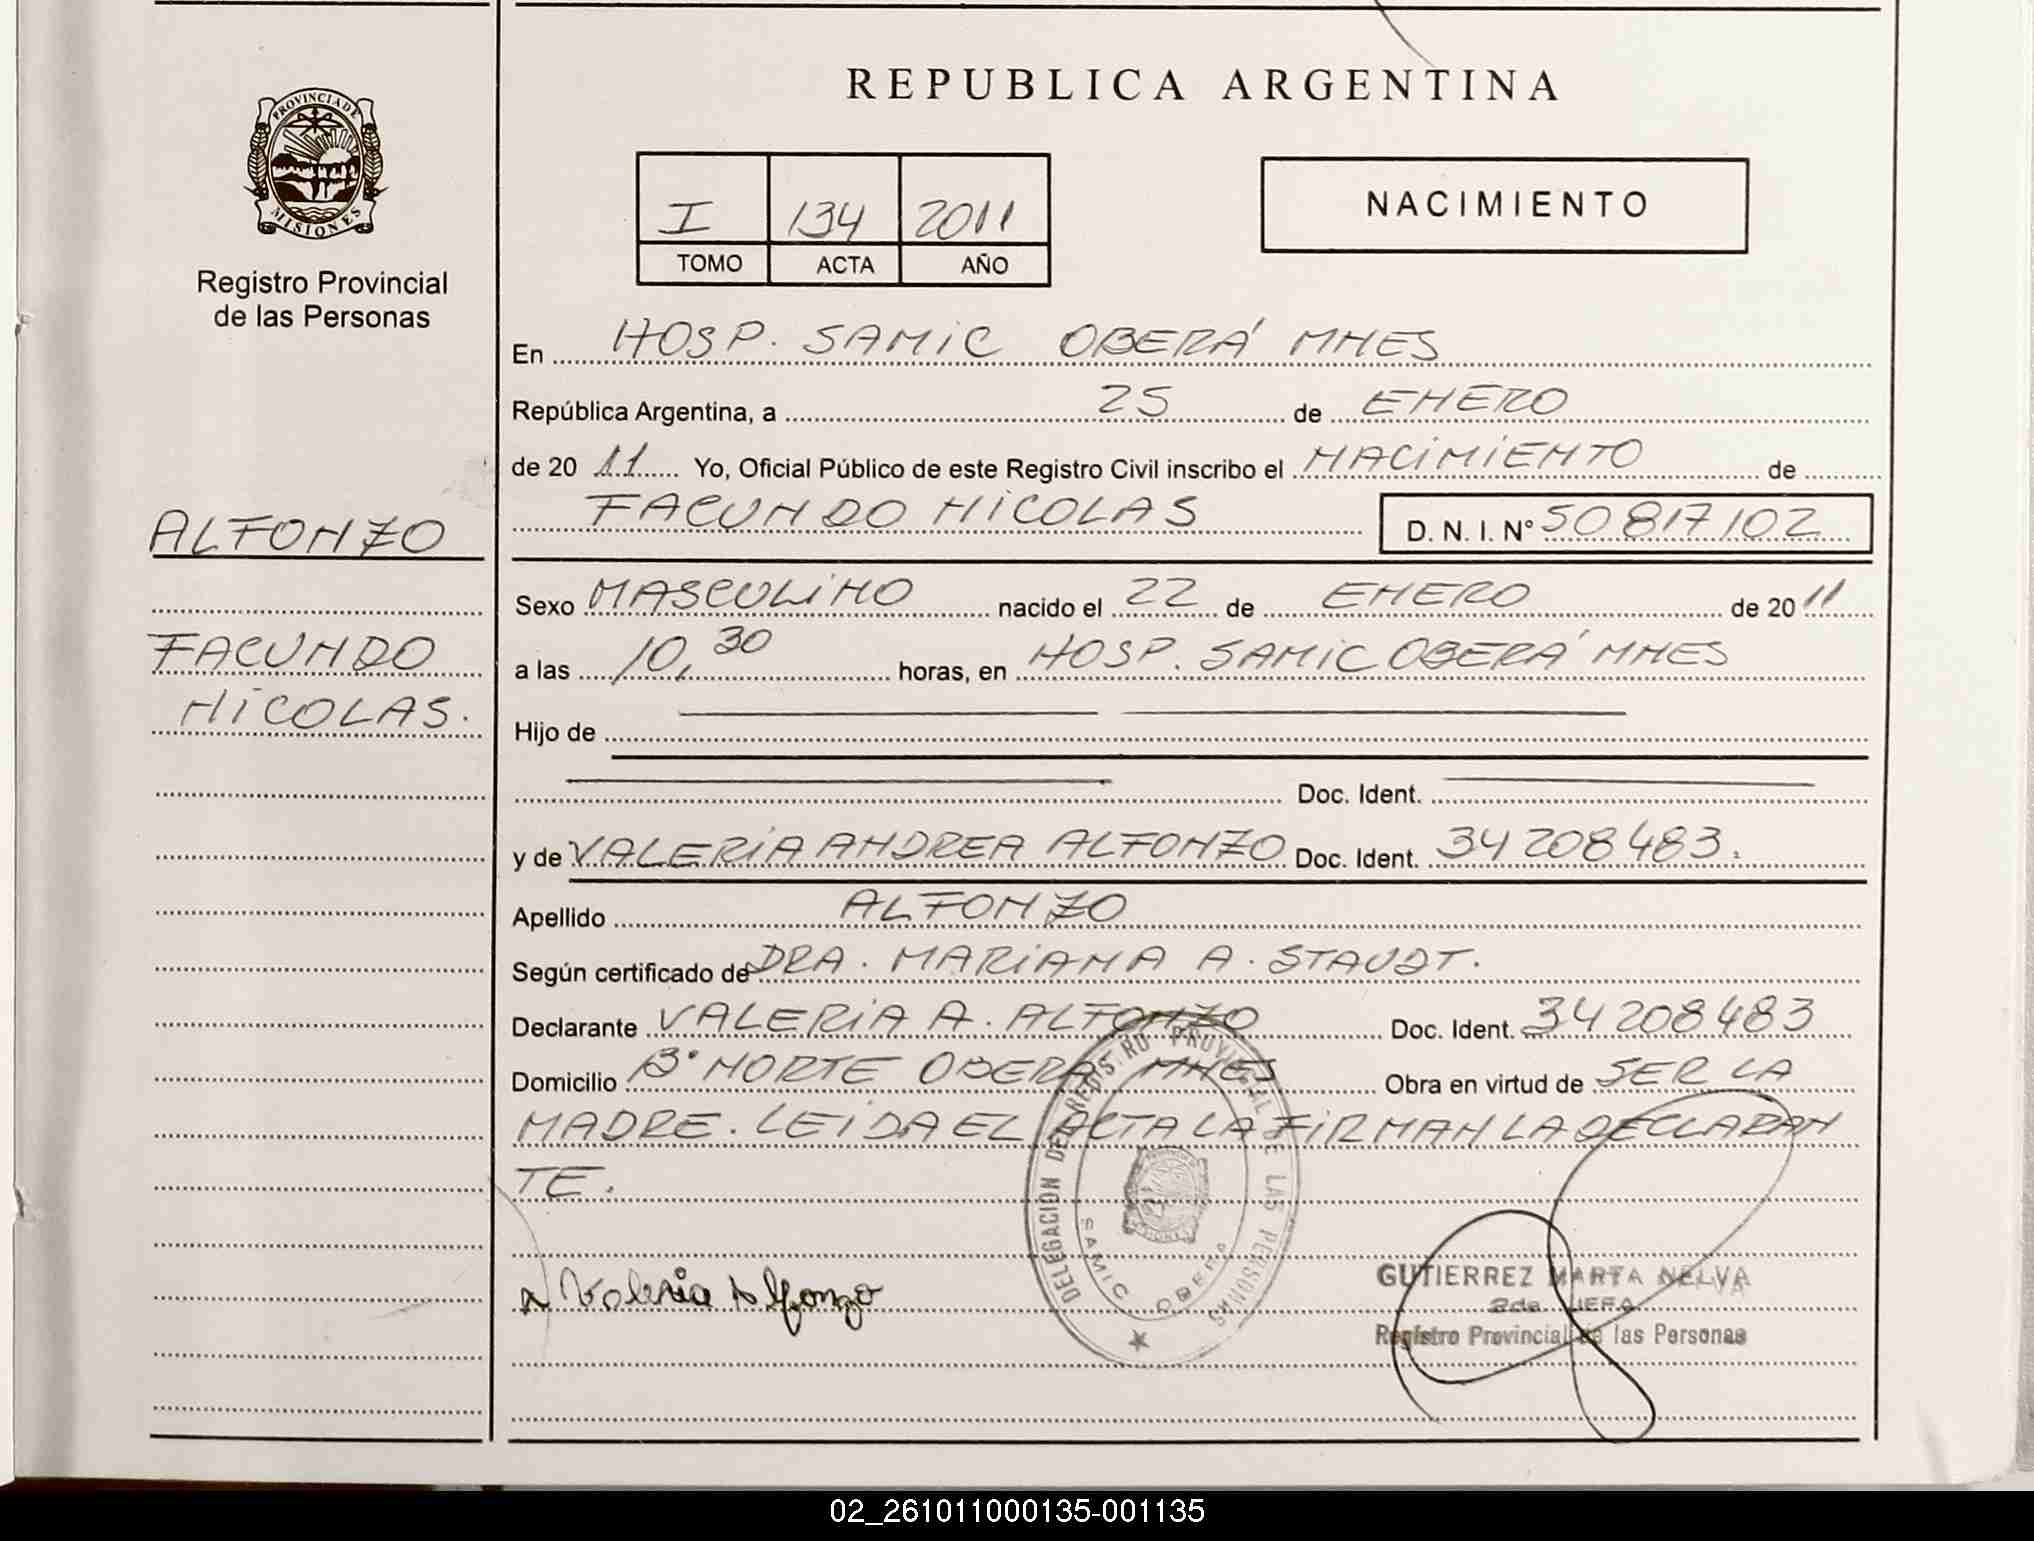 REPUBLICA ARGENTINA
PROVINCIA DE
MISIONES
Registro Provincial
de las Personas
I 134 2011
TOMO ACTA AÑO
NACIMIENTO
En HOSP. SAMIC OBERÁ MNES
República Argentina, a 25 de ENERO
de 20 11 Yo, Oficial Público de este Registro Civil inscribo el NACIMIENTO de
FACUNDO NICOLAS D. N. I. N° 50817102
ALFONZO
FACUNDO
NICOLAS.
Sexo MASCULINO nacido el 22 de ENERO de 20 11
a las 10,30 horas, en HOSP. SAMIC OBERÁ MNES
Hijo de
Doc. Ident.
y de VALERIA ANDREA ALFONZO Doc. Ident. 34208483.
Apellido ALFONZO
Según certificado de DRA. MARIANA A. STAUDT.
Declarante VALERIA A. ALFONZO Doc. Ident. 34208483
Domicilio B° NORTE OBERA MNES Obra en virtud de SER LA
MADRE. LEIDA EL ACTA LA FIRMAN LA DECLARAN
TE.
DELEGACION DEL REGISTRO PROVINCIAL DE LAS PERSONAS
SAMIC OBERA
Valeria Alfonzo
GUTIERREZ MARTA NELVA
2da JEFA
Registro Provincial de las Personas
02_261011000135-001135